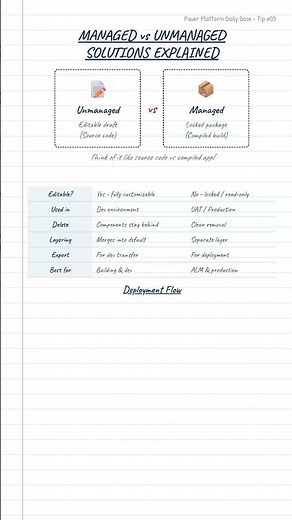 Power Platform Daily Dose - Tip #05
MANAGED vs UNMANAGED
SOLUTIONS EXPLAINED
Unmanaged
Editable draft
(Source code)
vs
Managed
Locked package
(Compiled build)
Think of it like source code vs compiled app!
Editable? Yes - fully customizable No - locked / read-only
Used in Dev environment UAT / Production
Delete Components stay behind Clean removal
Layering Merges into default Separate layer
Export For dev transfer For deployment
Best for Building & dev ALM & production
Deployment Flow